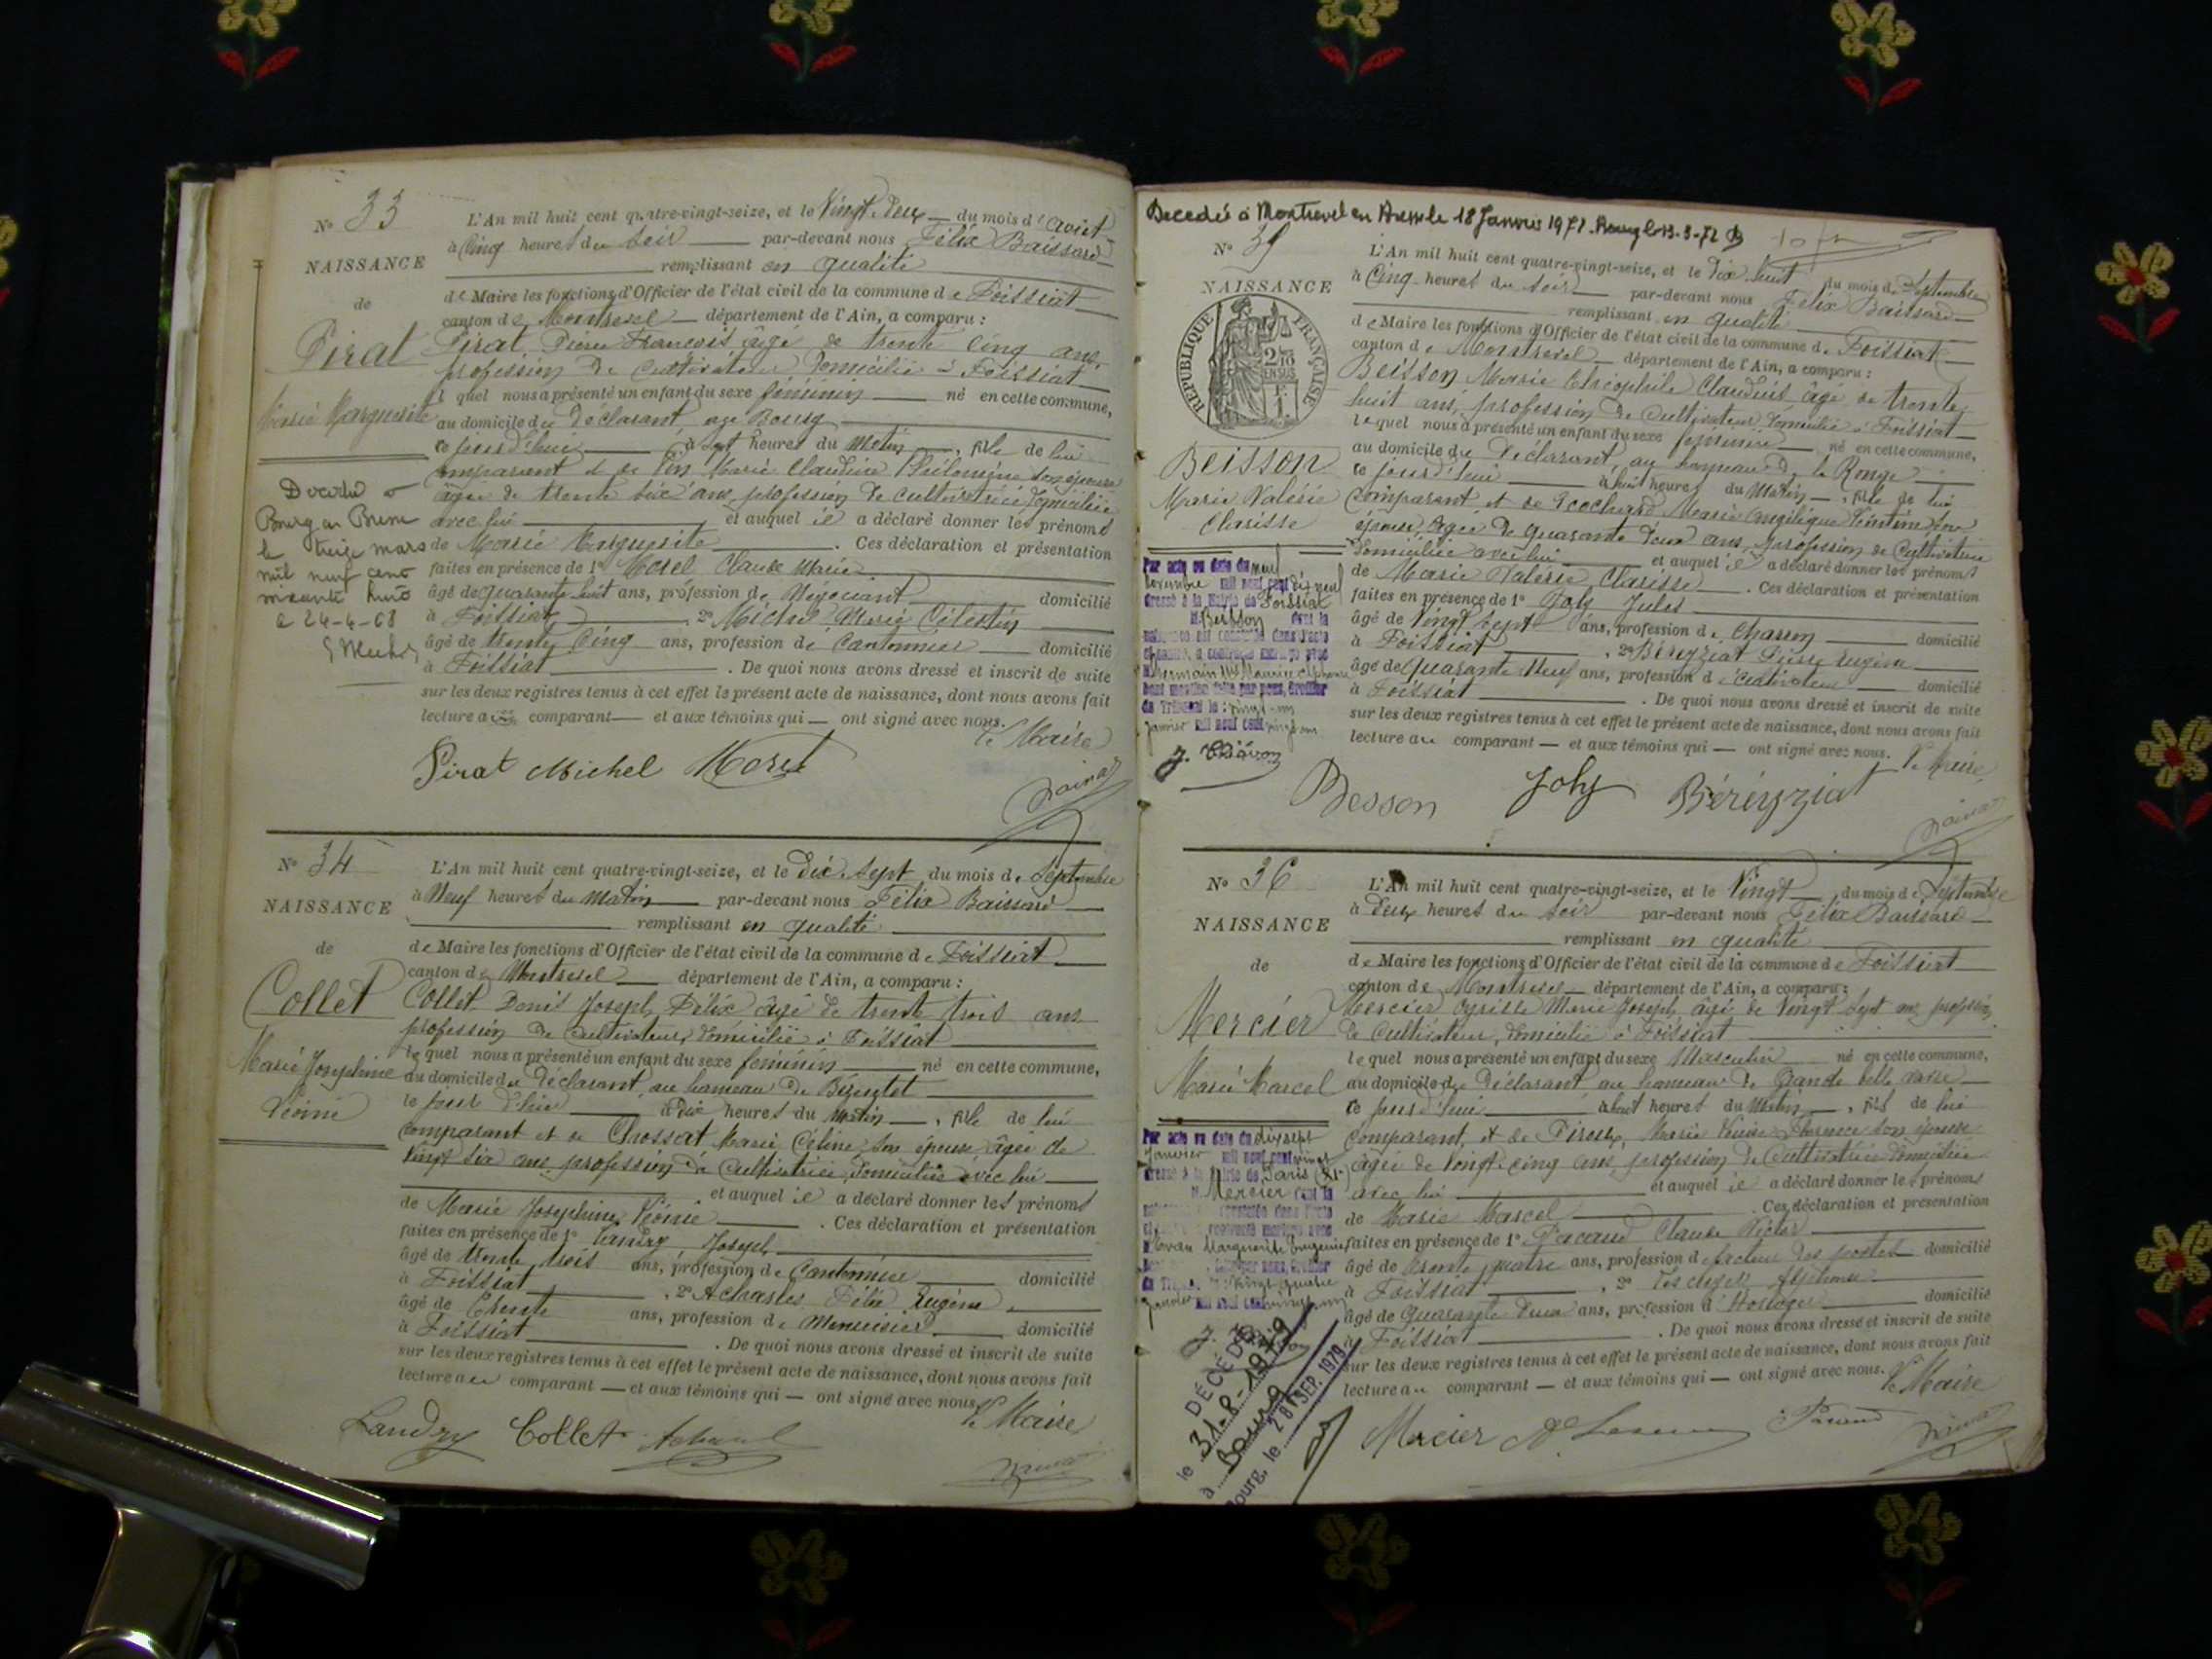 N° 33
NAISSANCE
de
Pirat
Marie Marguerite
L'An mil huit cent quatre-vingt-seize, et le Vingt-deux du mois d'Août
à Cinq heures du soir par-devant nous Félix Baissard
remplissant en qualité
de Maire les fonctions d'Officier de l'état civil de la commune de Foissiat
canton de Montrevel département de l'Ain, a comparu :
Pirat Pierre François âgé de trente cinq ans,
profession de Cultivateur domicilié à Foissiat
le quel nous a présenté un enfant du sexe féminin né en cette commune,
au domicile du Déclarant au Bourg
ce jourd'hui à sept heures du Matin, fille de lui
comparant et de Marie Claudine Philomène son épouse
âgée de trente six ans, profession de cultivatrice domiciliée
avec lui et auquel il a déclaré donner les prénoms
de Marie Marguerite. Ces déclaration et présentation
faites en présence de 1° Morel Claude Marie
âgé de quarante huit ans, profession de Négociant domicilié
à Foissiat, 2° Michel Marie Célestin
âgé de trente Cinq ans, profession de Cantonnier domicilié
à Foissiat. De quoi nous avons dressé et inscrit de suite
sur les deux registres tenus à cet effet le présent acte de naissance, dont nous avons fait
lecture au comparant et aux témoins qui ont signé avec nous.
Le Maire
Pirat Michel Morel
Décédée à
Bourg en Bresse
le treize mars
mil neuf cent
soixante huit
le 24-4-68
N° 34
NAISSANCE
de
Collet
Marie Joséphine
Léonie
L'An mil huit cent quatre-vingt-seize, et le Dix-sept du mois de Septembre
à Neuf heures du Matin par-devant nous Félix Baissard
remplissant en qualité
de Maire les fonctions d'Officier de l'état civil de la commune de Foissiat
canton de Montrevel département de l'Ain, a comparu :
Collet Denis Joseph Félix âgé de trente trois ans
profession de Cultivateur, domicilié à Foissiat
le quel nous a présenté un enfant du sexe féminin né en cette commune,
au domicile du Déclarant, au hameau de
ce jour d'hui à dix heures du Matin, fille de lui
comparant et de Chossat Marie Céline son épouse âgée de
Vingt six ans profession de Cultivatrice, domiciliée avec lui
et auquel il a déclaré donner les prénoms
de Marie Joséphine Léonie. Ces déclaration et présentation
faites en présence de 1° Landry Joseph
âgé de trente trois ans, profession de Cantonnier domicilié
à Foissiat, 2° Félix Eugène
âgé de Trente ans, profession de Menuisier domicilié
à Foissiat. De quoi nous avons dressé et inscrit de suite
sur les deux registres tenus à cet effet le présent acte de naissance, dont nous avons fait
lecture au comparant et aux témoins qui ont signé avec nous.
Le Maire
Landry Collet
Decedée à Montrevel en Bresse le 18 Janvier 1971. Bourg le
N° 35
NAISSANCE
RÉPUBLIQUE FRANÇAISE
Beisson
Marie Valérie
Clarisse
L'An mil huit cent quatre-vingt-seize, et le Dix huit du mois de Septembre
à Cinq heures du soir par-devant nous Félix Baissard
remplissant en qualité
de Maire les fonctions d'Officier de l'état civil de la commune de Foissiat
canton de Montrevel département de l'Ain, a comparu :
Beisson Marie Théophile Claudius âgé de trente
huit ans, profession de Cultivateur domicilié à Foissiat
lequel nous a présenté un enfant du sexe féminin né en cette commune,
au domicile du Déclarant, au hameau de la Ronge
ce jourd'hui à huit heures du Matin, fille de lui
comparant et de Marie Angélique son
épouse âgée de quarante deux ans, profession de Cultivatrice
domiciliée avec lui et auquel il a déclaré donner les prénoms
de Marie Valérie Clarisse. Ces déclaration et présentation
faites en présence de 1° Joly Jules
âgé de Vingt sept ans, profession de Charron domicilié
à Foissiat, 2° Béréyziat Pierre Eugène
âgé de quarante Neuf ans, profession de Cultivateur domicilié
à Foissiat. De quoi nous avons dressé et inscrit de suite
sur les deux registres tenus à cet effet le présent acte de naissance, dont nous avons fait
lecture au comparant et aux témoins qui ont signé avec nous.
Le Maire
Besson Joly Béréyziat
Par acte en date du neuf
novembre mil neuf cent dix neuf
dressé à la Mairie de Foissiat
Beisson dont la
naissance est constatée dans l'acte
ci-contre, a contracté mariage avec
Maurice Alphonse
Dont mention faite par nous, Greffier
du Tribunal le vingt-un
janvier mil neuf cent vingt un
N° 36
NAISSANCE
de
Mercier
Marie Marcel
L'An mil huit cent quatre-vingt-seize, et le Vingt du mois de Septembre
à Deux heures du soir par-devant nous Félix Baissard
remplissant en qualité
de Maire les fonctions d'Officier de l'état civil de la commune de Foissiat
canton de Montrevel département de l'Ain, a comparu :
Mercier Cyrille Marie Joseph, âgé de Vingt sept ans profession
de Cultivateur, domicilié à Foissiat
le quel nous a présenté un enfant du sexe Masculin né en cette commune,
au domicile du Déclarant au hameau de Grande belle vasse
ce jourd'hui à huit heures du Matin, fils de lui
comparant, et de Piroux, Marie Louise Florence son épouse
âgée de Vingt-cinq ans, profession de Cultivatrice domiciliée
avec lui et auquel il a déclaré donner les prénoms
de Marie Marcel. Ces déclaration et présentation
faites en présence de 1° Pacaud Claude Victor
âgé de trente quatre ans, profession de facteur des postes domicilié
à Foissiat, 2° Alphonse
âgé de quarante deux ans, profession d'Horloger domicilié
à Foissiat. De quoi nous avons dressé et inscrit de suite
sur les deux registres tenus à cet effet le présent acte de naissance, dont nous avons fait
lecture au comparant et aux témoins qui ont signé avec nous.
Le Maire
Mercier Pacaud
Par acte en date du dix sept
janvier mil neuf cent vingt
dressé à la Mairie de Paris
Mercier dont la
Marguerite Eugénie
DÉCÉDÉ
le 31-8-1979
à Bourg
Bourg, le 28 SEP. 1979